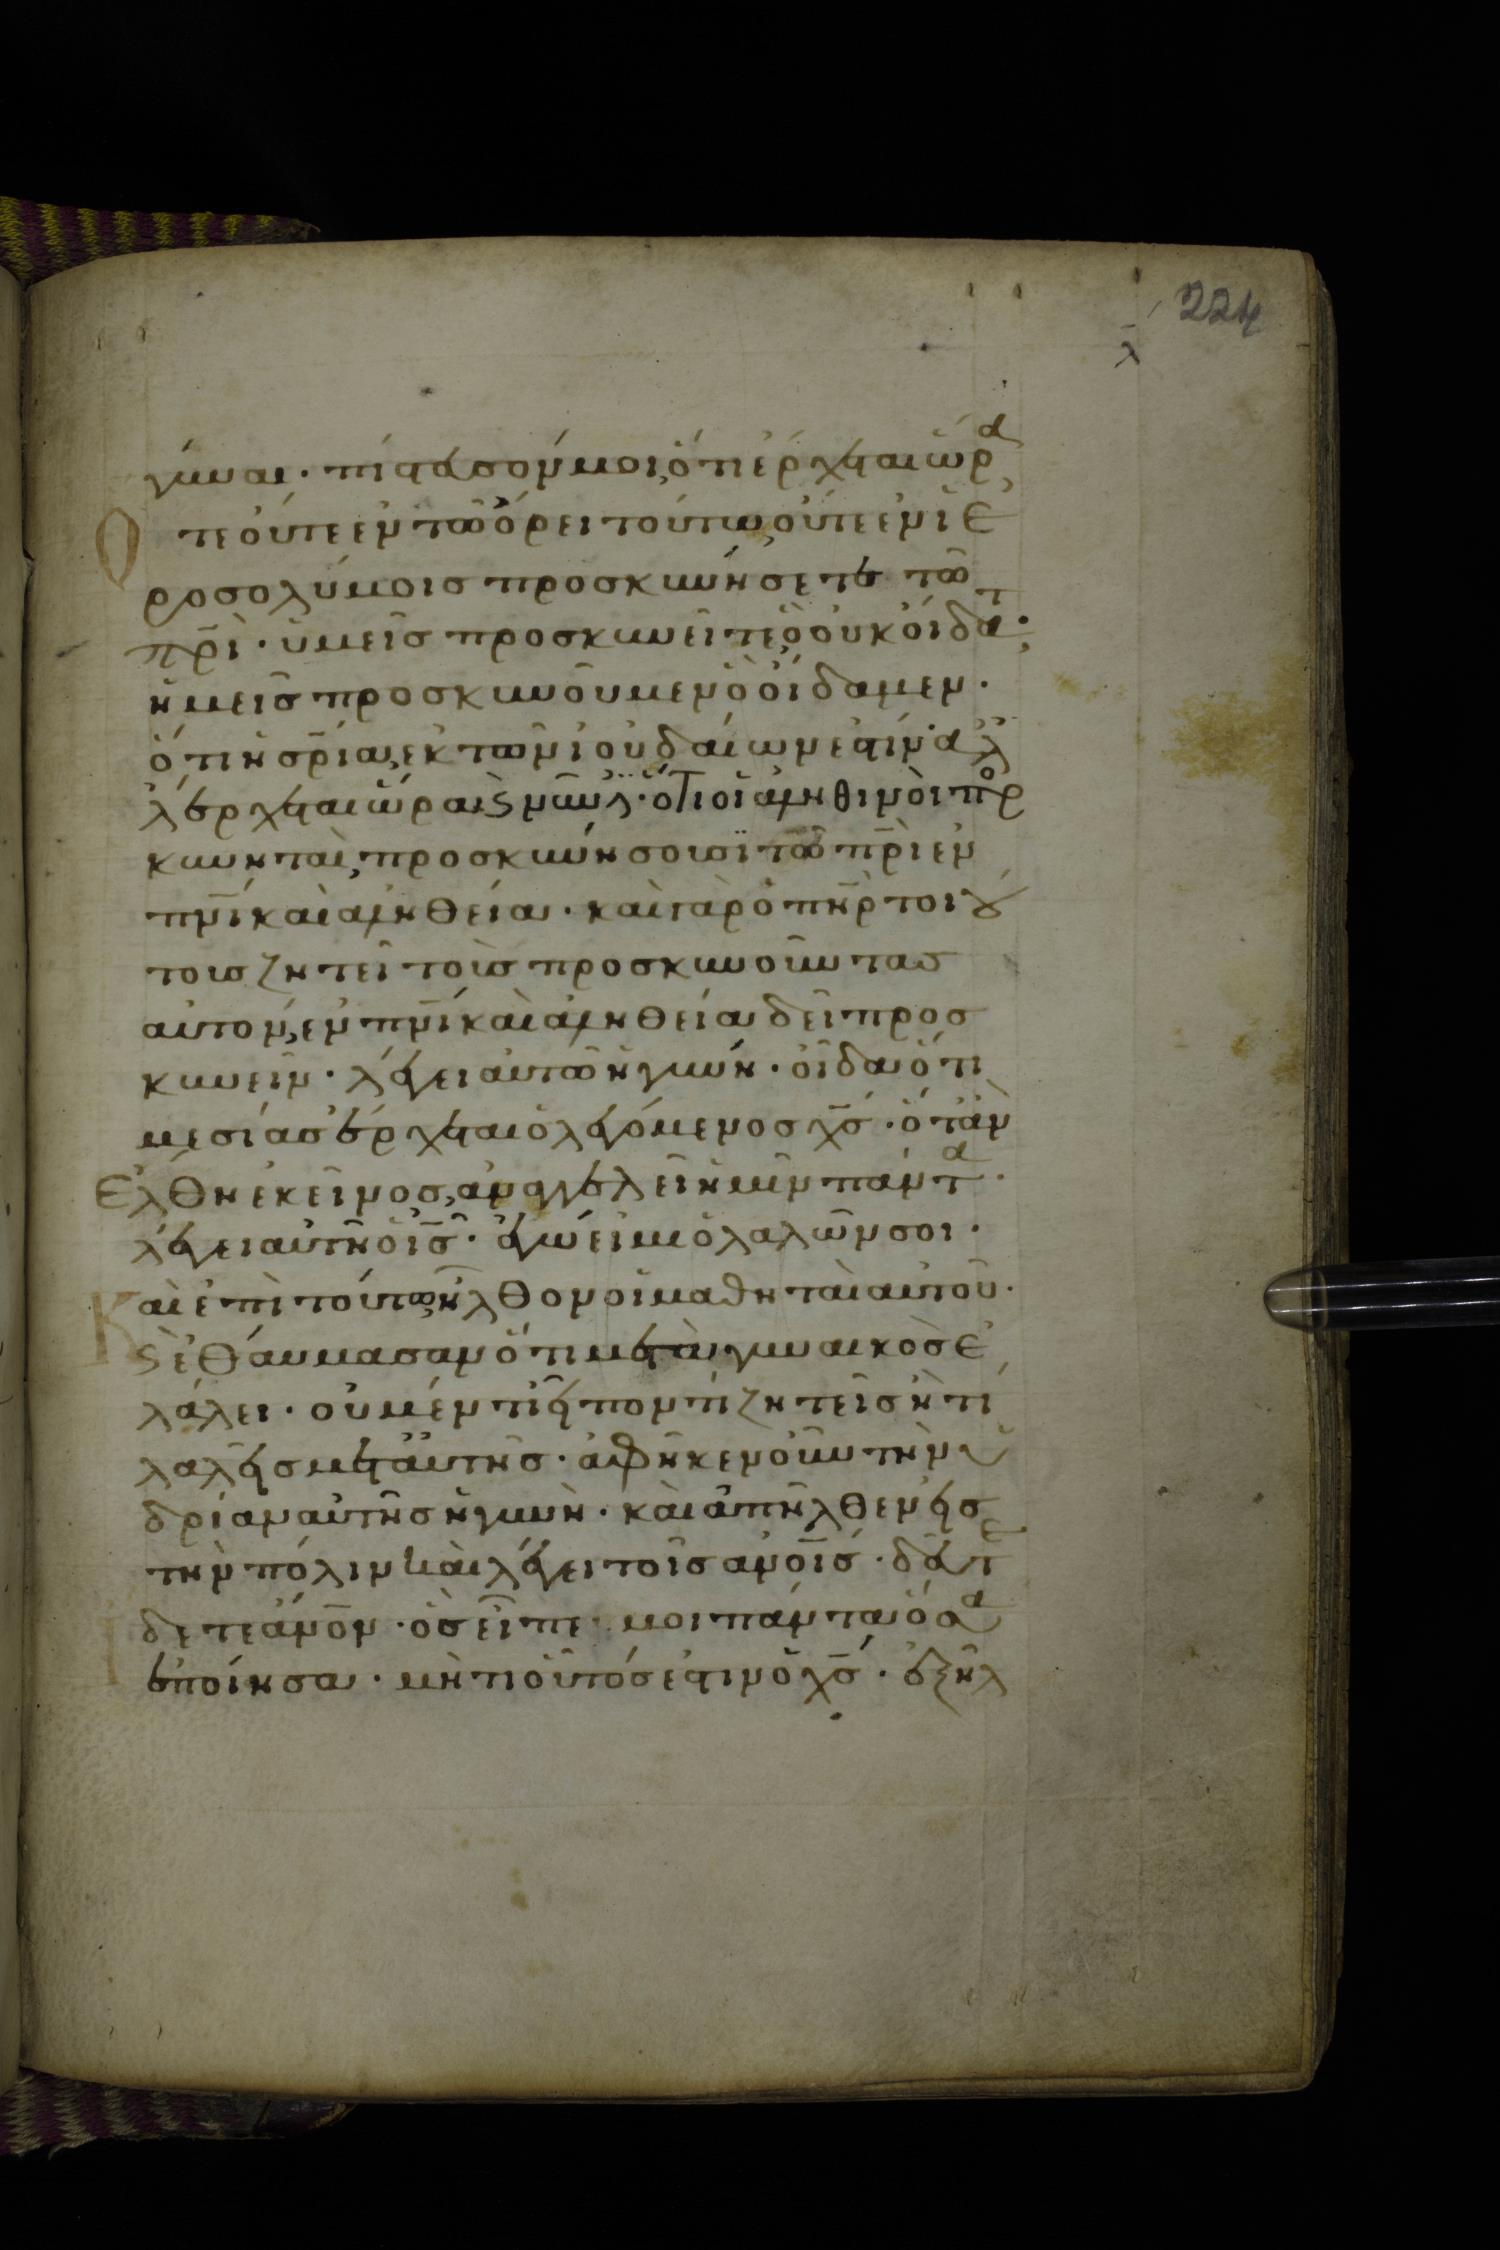 224
λ̄
γύναι· πίστευσόν μοι, ὅτι ἔρχεται ὥρα
Ὅτε οὔτε ἐν τῶ ὄρει τούτω, οὔτε ἐν ἱε
ροσολύμοις προσκυνήσετε τῶ
πρ̄ι· ὑμεῖς προσκυνεῖτε, ὃ οὐκ οἴδατ·
ἡμεῖς προσκυνοῦμεν ὃ οἴδαμεν·
ὅτι ἡ σρ̄ια, ἐκ τῶν ἰουδαίων ἐστίν· ἀλ
λ' ἔρχεται ὥρα ϗ νῦν ἐστ· ὅτι οἱ ἀληθινοὶ προ
κυνηταὶ, προσκυνήσουσι τῶ πρ̄ι ἐν
πν̄ι καὶ ἀληθεία· καὶ γὰρ ὁ πη̄ρ τοιού
τους ζητεῖ τοὺς προσκυνοῦντας
αὐτόν, ἐν πν̄ι καὶ ἀληθεία δεῖ προσ
κυνεῖν· λέγει αὐτῶ ἡ γυνή· οἶδα ὅτι
μεσίας ἔρχεται ὁ λεγόμενος χς̄· ὅταν
Ἔλθη ἐκεῖνος, ἀναγγελεῖ ἡμῖν πάντα·
λέγει αὐτῆ ὁ ις̄· ἐγώ εἰμι ὁ λαλῶν σοι·
Καὶ ἐπὶ τούτω, ἦλθον οἱ μαθηταὶ αὐτοῦ·
ϗ ἐθαύμασαν ὅτι μετὰ γυναικὸς ἐ
λάλει· οὐ μέν τις εἶπον τί ζητεῖς ἢ τί
λαλεῖς μετ' αὐτῆς· ἀφῆκεν οὖν τὴν ὑ
δρίαν αὐτῆς ἡ γυνὴ· καὶ ἀπῆλθεν εἰς
τὴν πόλιν καὶ λέγει τοῖς ἀνο̄ις· δεῦτε
ἴδετε ἀνο̄ν· ὃς εἶπε μοι πάντα ὅσα
ἐποίησα· μήτι οὗτός ἐστιν ὁ χς̄· ἐξῆλ